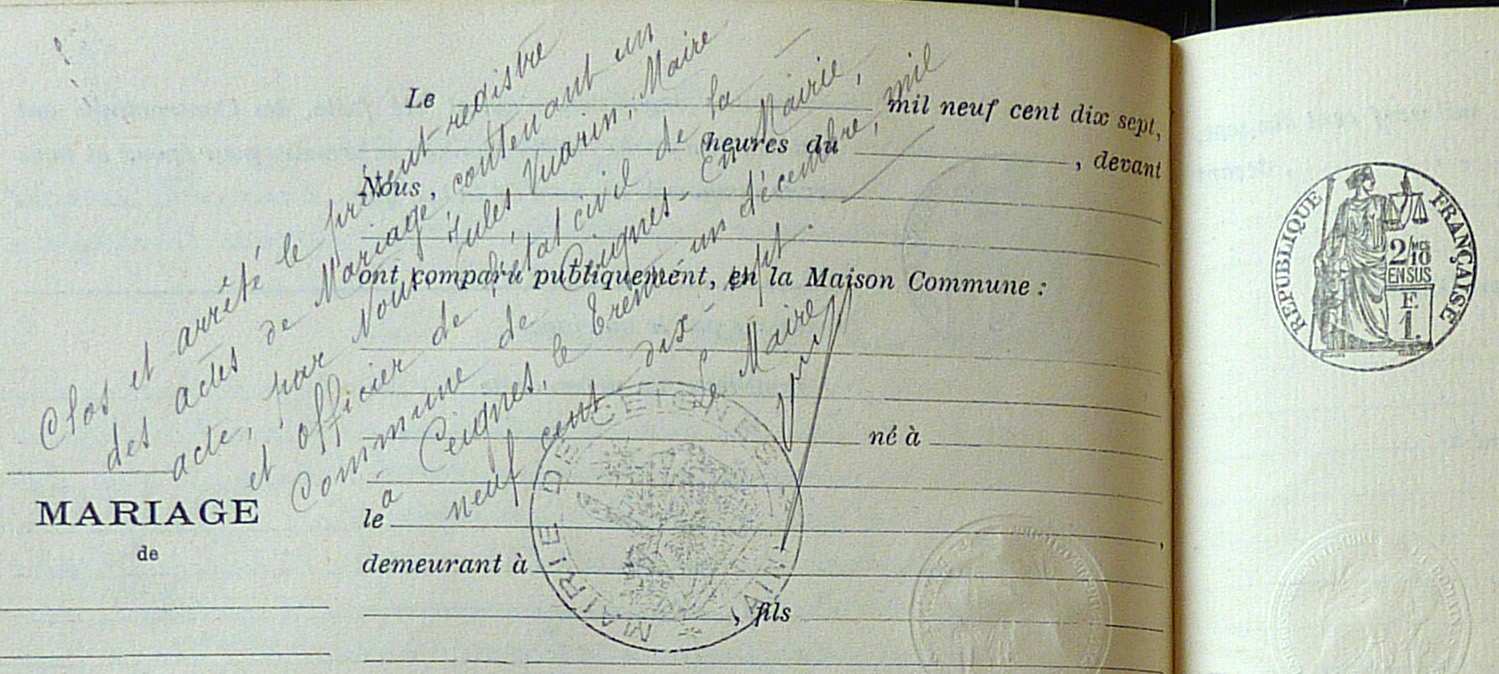 Le mil neuf cent dix sept,
heures du , devant
Nous,
ont comparu publiquement, en la Maison Commune :
né à
le ,
demeurant à
, fils
MARIAGE
de
Clos et arrêté le présent registre
des actes de Mariage, contenant un
acte, par Nous, Jules Vuarin, Maire
et officier de l'état civil de la
Commune de Ceignes - En Mairie,
à Ceignes, le trente un décembre, mil
neuf cent dix-sept.
Le Maire
MAIRIE DE CEIGNES
(AIN)
RÉPUBLIQUE FRANÇAISE
2/10
EN SUS
F
1.